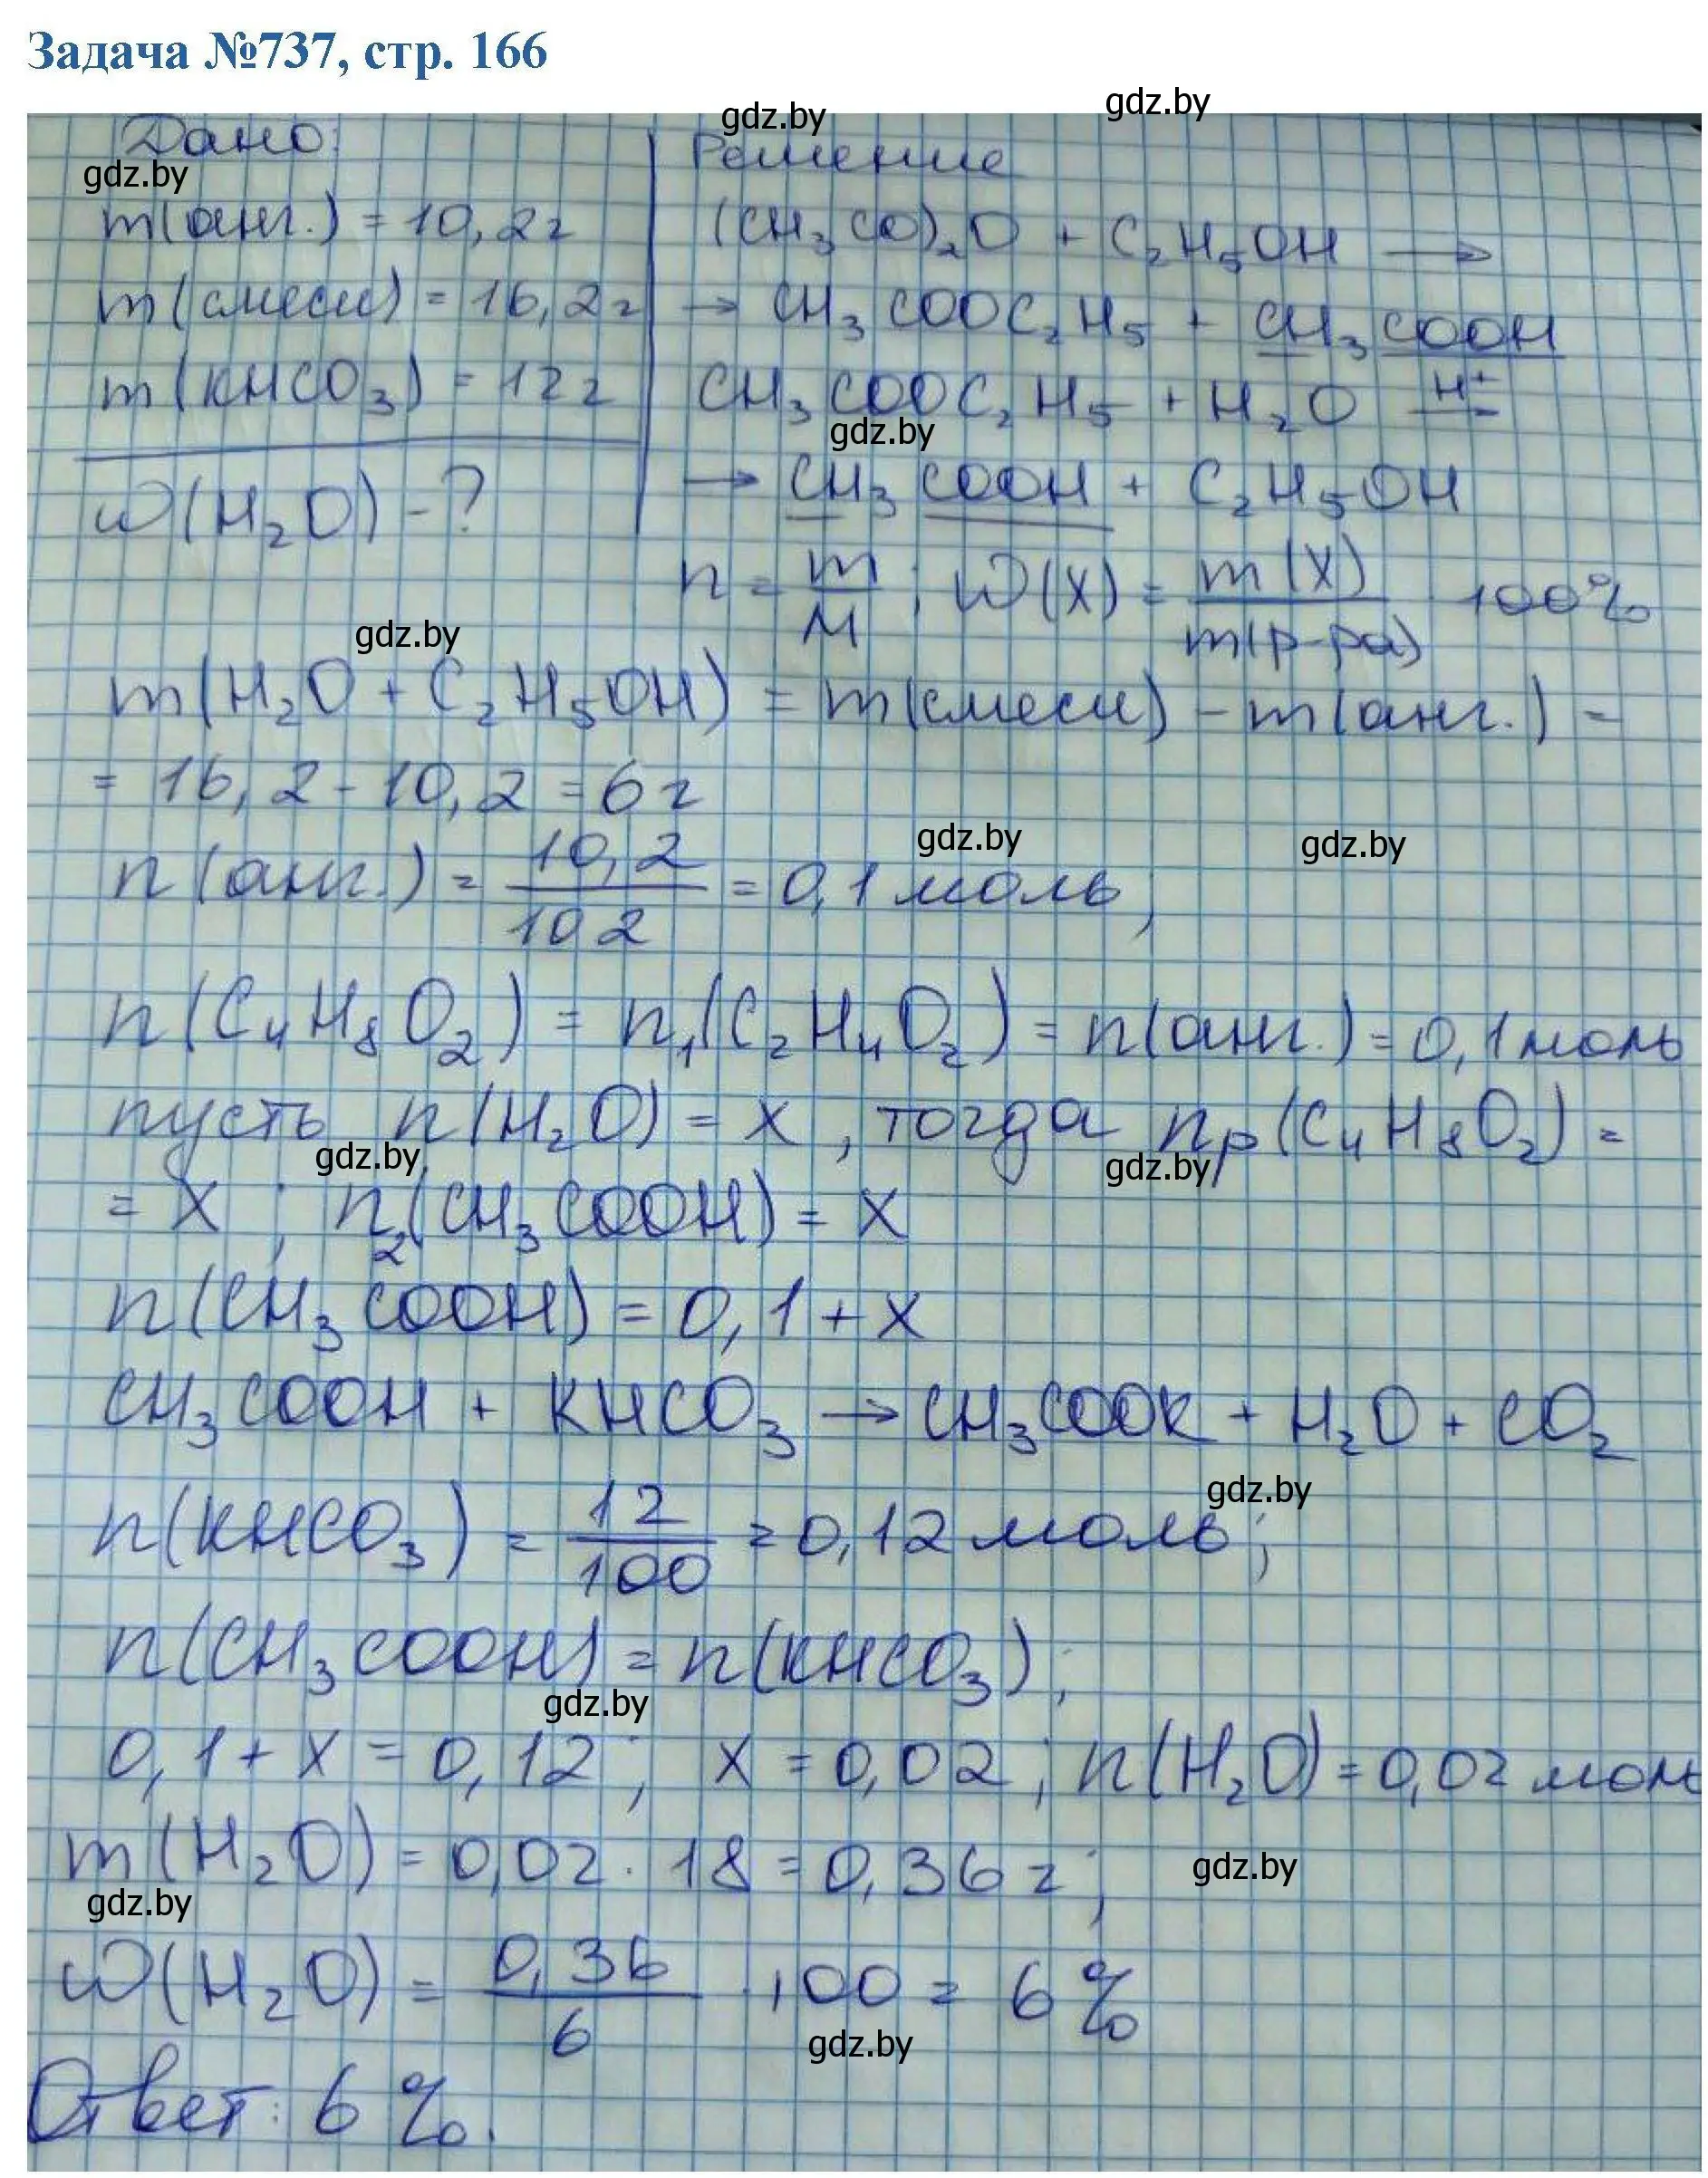 Задача №737, стр. 166
gdz.by
gdz.by
Дано:
Решение
gdz.by
m(анг.) = 10,2г
(CH₃CO)₂O + C₂H₅OH →
m(смеси) = 16,2г
→ CH₃COOC₂H₅ + CH₃COOH
m(KHCO₃) = 12г
CH₃COOC₂H₅ + H₂O H⁺
gdz.by
w(H₂O) - ?
→ CH₃COOH + C₂H₅OH
n = m/M ; w(X) = m(X)/m(р-ра) 100%
gdz.by
m(H₂O + C₂H₅OH) = m(смеси) - m(анг.) =
= 16,2 - 10,2 = 6г
gdz.by
gdz.by
n(анг.) = 10,2/102 = 0,1 моль;
n(C₄H₈O₂) = n₁(C₂H₄O₂) = n(анг.) = 0,1 моль
пусть n(H₂O) = x, тогда nр(C₄H₈O₂) =
gdz.by
gdz.by
= x ; n₂(CH₃COOH) = x
n(CH₃COOH) = 0,1 + x
CH₃COOH + KHCO₃ → CH₃COOK + H₂O + CO₂
gdz.by
n(KHCO₃) = 12/100 = 0,12 моль;
n(CH₃COOH) = n(KHCO₃);
gdz.by
0,1 + x = 0,12; x = 0,02; n(H₂O) = 0,02 моль
m(H₂O) = 0,02 · 18 = 0,36г;
gdz.by
gdz.by
w(H₂O) = 0,36/6 · 100 = 6%
gdz.by
Ответ: 6%.